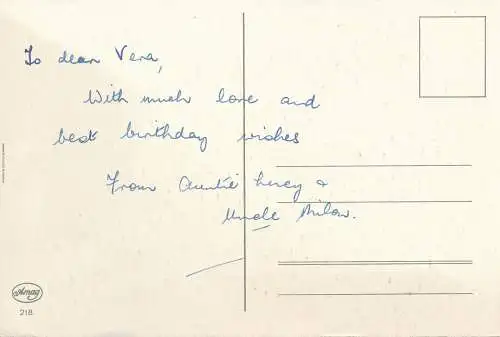 To dear Vera,
With much love and
best birthday wishes
From Auntie Lucy &
Uncle Milow.
Amag
218